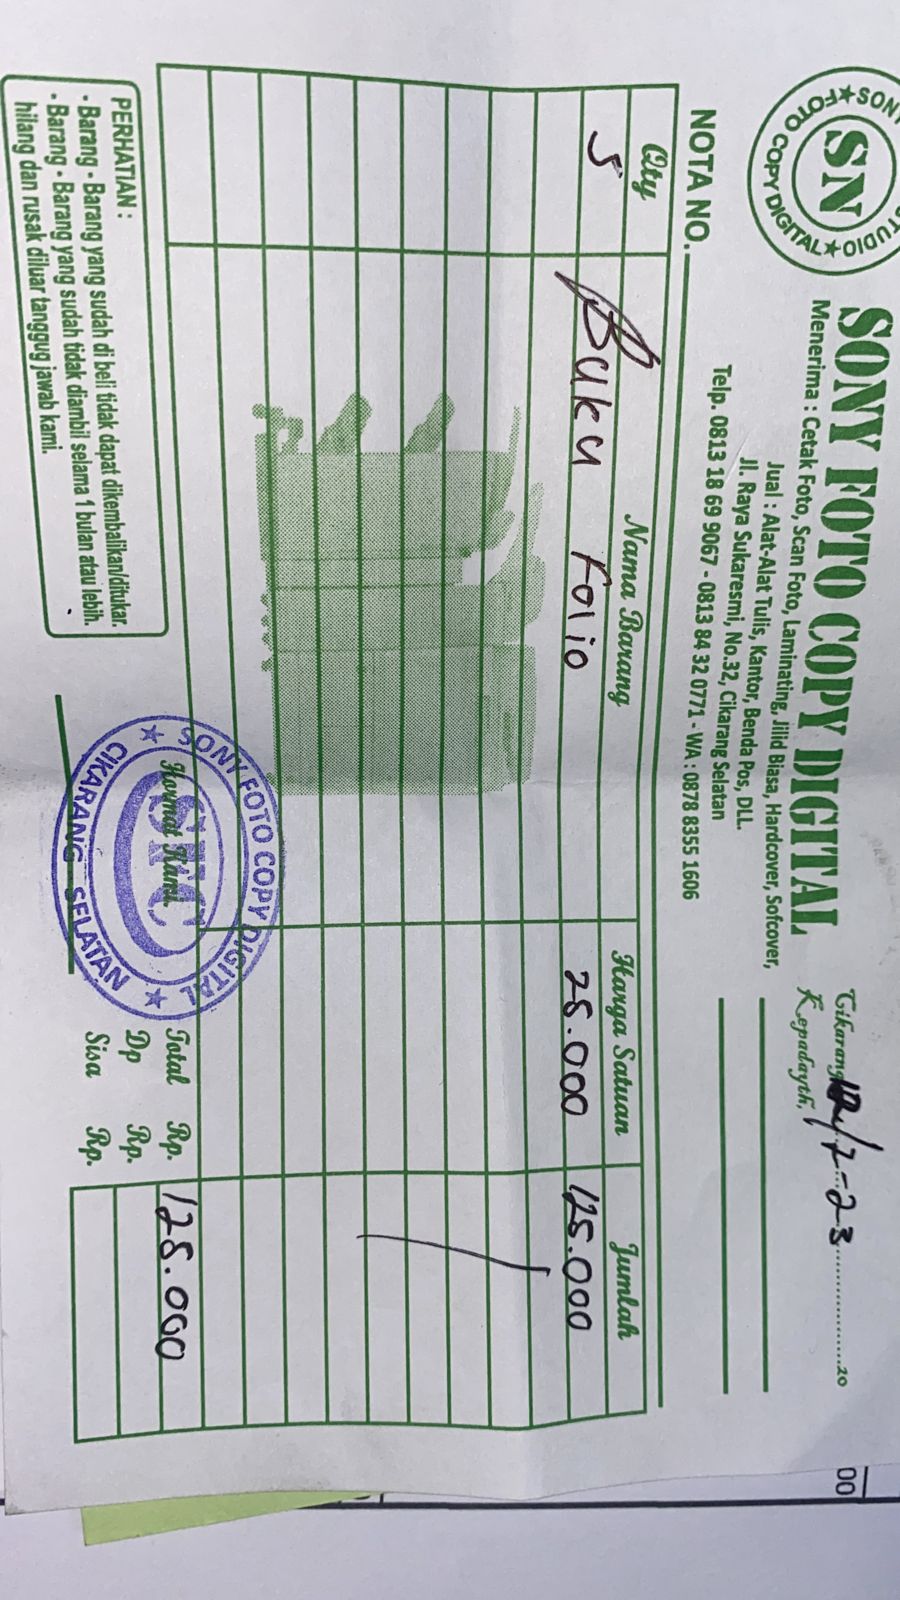 SONY FOTO COPY DIGITAL
SN
FOTO COPY DIGITAL
Menerima : Cetak Foto, Scan Foto, Laminating, Jilid Biasa, Hardcover, Sofcover,
Jual : Alat-Alat Tulis, Kantor, Benda Pos, DLL.
Jl. Raya Sukaresmi, No.32, Cikarang Selatan
Telp. 0813 18 69 9067 - 0813 84 32 0771 - WA : 0878 8355 1606
Cikarang 7-23 20
Kepadayth,
NOTA NO.
Qty Nama Barang Harga Satuan Jumlah
5 Buku Folio 25.000 125.000
Total Rp. 125.000
Dp Rp.
Sisa Rp.
Hormat Kami,
SONY FOTO COPY DIGITAL
SFC
CIKARANG SELATAN
PERHATIAN :
- Barang - Barang yang sudah di beli tidak dapat dikembalikan/ditukar.
- Barang - Barang yang sudah tidak diambil selama 1 bulan atau lebih.
hilang dan rusak diluar tanggug jawab kami.
00